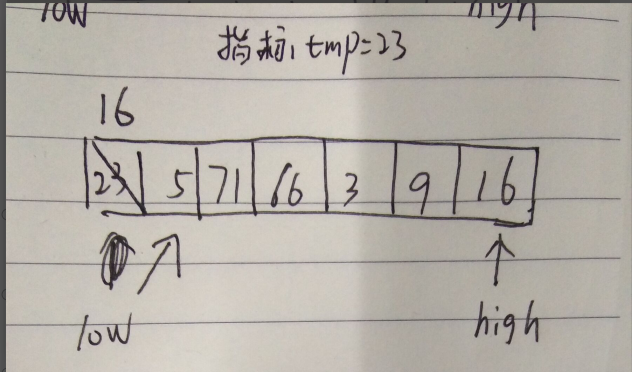 low high
指标, tmp=23
16
23 5 71 66 3 9 16
low high